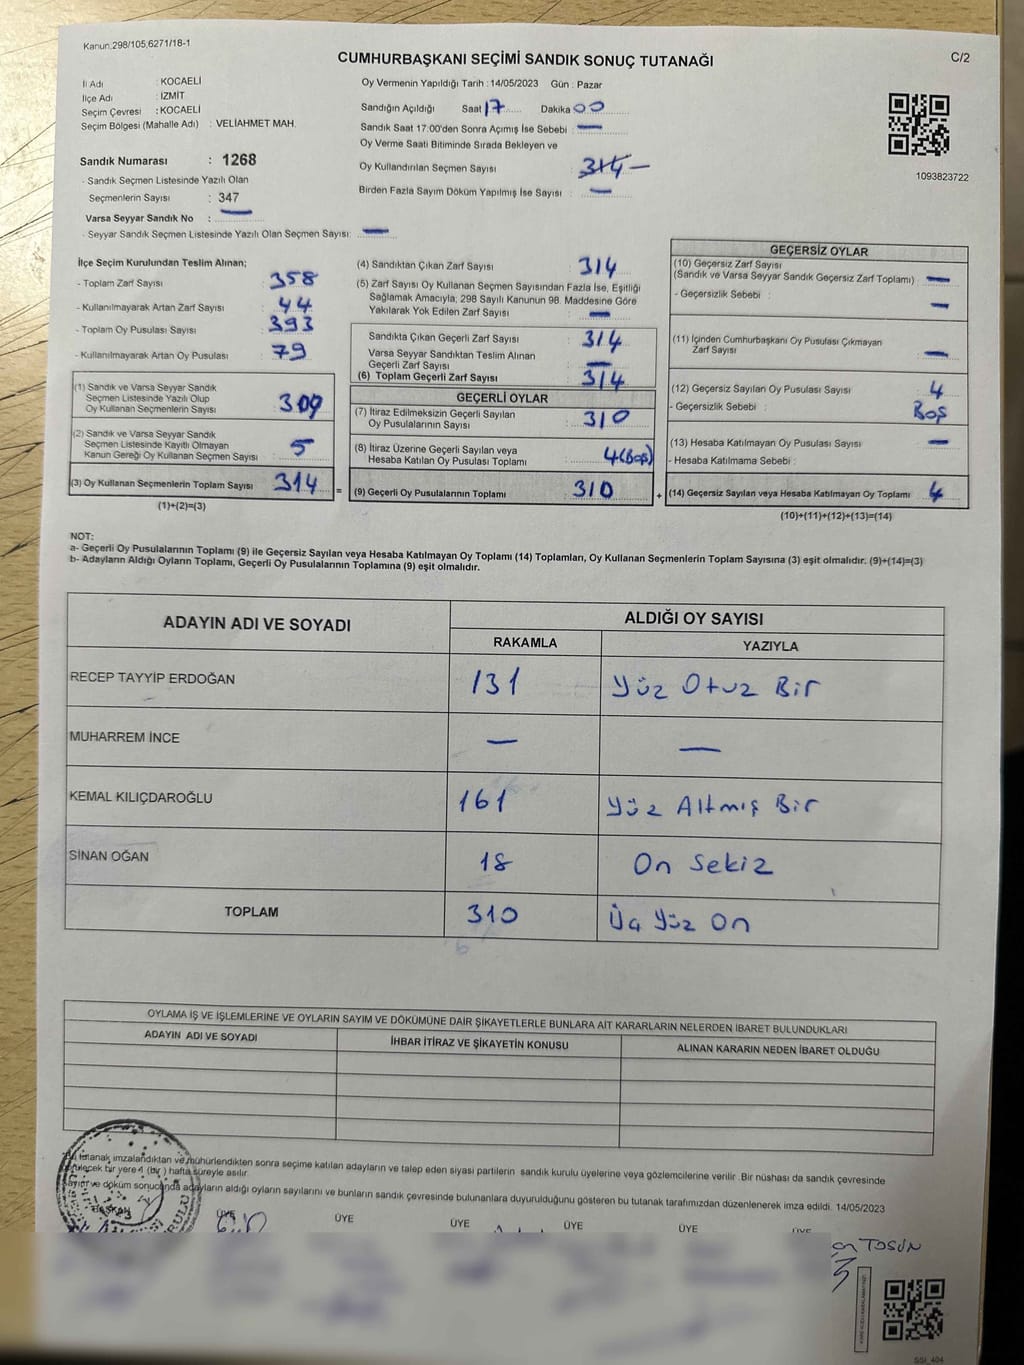 Kanun.298/105,6271/18-1
C/2
CUMHURBAŞKANI SEÇİMİ SANDIK SONUÇ TUTANAĞI
İl Adı : KOCAELİ
İlçe Adı : İZMİT
Seçim Çevresi : KOCAELİ
Seçim Bölgesi (Mahalle Adı) : VELİAHMET MAH.
Sandık Numarası : 1268
- Sandık Seçmen Listesinde Yazılı Olan
Seçmenlerin Sayısı : 347
Varsa Seyyar Sandık No : —
- Seyyar Sandık Seçmen Listesinde Yazılı Olan Seçmen Sayısı: —
Oy Vermenin Yapıldığı Tarih : 14/05/2023 Gün : Pazar
Sandığın Açıldığı Saat 17 Dakika 00
Sandık Saat 17:00'den Sonra Açımış İse Sebebi : —
Oy Verme Saati Bitiminde Sırada Bekleyen ve
Oy Kullandırılan Seçmen Sayısı : 314 —
Birden Fazla Sayım Döküm Yapılmış İse Sayısı : —
1093823722
İlçe Seçim Kurulundan Teslim Alınan;
- Toplam Zarf Sayısı : 358
- Kullanılmayarak Artan Zarf Sayısı : 44
- Toplam Oy Pusulası Sayısı : 393
- Kullanılmayarak Artan Oy Pusulası : 79
(1) Sandık ve Varsa Seyyar Sandık
Seçmen Listesinde Yazılı Olup
Oy Kullanan Seçmenlerin Sayısı : 309
(2) Sandık ve Varsa Seyyar Sandık
Seçmen Listesinde Kayıtlı Olmayan
Kanun Gereği Oy Kullanan Seçmen Sayısı : 5
(3) Oy Kullanan Seçmenlerin Toplam Sayısı : 314
(1)+(2)=(3)
(4) Sandıktan Çıkan Zarf Sayısı : 314
(5) Zarf Sayısı Oy Kullanan Seçmen Sayısından Fazla İse, Eşitliği
Sağlamak Amacıyla; 298 Sayılı Kanunun 98. Maddesine Göre
Yakılarak Yok Edilen Zarf Sayısı : —
Sandıkta Çıkan Geçerli Zarf Sayısı : 314
Varsa Seyyar Sandıktan Teslim Alınan
Geçerli Zarf Sayısı : —
(6) Toplam Geçerli Zarf Sayısı : 314
GEÇERLİ OYLAR
(7) İtiraz Edilmeksizin Geçerli Sayılan
Oy Pusulalarının Sayısı : 310
(8) İtiraz Üzerine Geçerli Sayılan veya
Hesaba Katılan Oy Pusulası Toplamı : 4(Boş)
= (9) Geçerli Oy Pusulalarının Toplamı : 310
GEÇERSİZ OYLAR
(10) Geçersiz Zarf Sayısı
(Sandık ve Varsa Seyyar Sandık Geçersiz Zarf Toplamı) : —
- Geçersizlik Sebebi : —
(11) İçinden Cumhurbaşkanı Oy Pusulası Çıkmayan
Zarf Sayısı : —
(12) Geçersiz Sayılan Oy Pusulası Sayısı : 4
- Geçersizlik Sebebi : Boş
(13) Hesaba Katılmayan Oy Pusulası Sayısı : —
- Hesaba Katılmama Sebebi :
+ (14) Geçersiz Sayılan veya Hesaba Katılmayan Oy Toplamı : 4
(10)+(11)+(12)+(13)=(14)
NOT:
a- Geçerli Oy Pusulalarının Toplamı (9) ile Geçersiz Sayılan veya Hesaba Katılmayan Oy Toplamı (14) Toplamları, Oy Kullanan Seçmenlerin Toplam Sayısına (3) eşit olmalıdır. (9)+(14)=(3)
b- Adayların Aldığı Oyların Toplamı, Geçerli Oy Pusulalarının Toplamına (9) eşit olmalıdır.
ADAYIN ADI VE SOYADI ALDIĞI OY SAYISI
RAKAMLA YAZIYLA
RECEP TAYYİP ERDOĞAN 131 Yüz Otuz Bir
MUHARREM İNCE — —
KEMAL KILIÇDAROĞLU 161 Yüz Altmış Bir
SİNAN OĞAN 18 On Sekiz
TOPLAM 310 Üç Yüz On
OYLAMA İŞ VE İŞLEMLERİNE VE OYLARIN SAYIM VE DÖKÜMÜNE DAİR ŞİKAYETLERLE BUNLARA AİT KARARLARIN NELERDEN İBARET BULUNDUKLARI
ADAYIN ADI VE SOYADI İHBAR İTİRAZ VE ŞİKAYETİN KONUSU ALINAN KARARIN NEDEN İBARET OLDUĞU
tutanak imzalandıktan ve mühürlendikten sonra seçime katılan adayların ve talep eden siyasi partilerin sandık kurulu üyelerine veya gözlemcilerine verilir. Bir nüshası da sandık çevresinde
bir yere 1 (bir) hafta süreyle asılır.
ve döküm sonucunda adayların aldığı oyların sayılarını ve bunların sandık çevresinde bulunanlara duyurulduğunu gösteren bu tutanak tarafımızdan düzenlenerek imza edildi. 14/05/2023
BAŞKAN ÜYE ÜYE ÜYE ÜYE ÜYE ÜYE
TOSUN